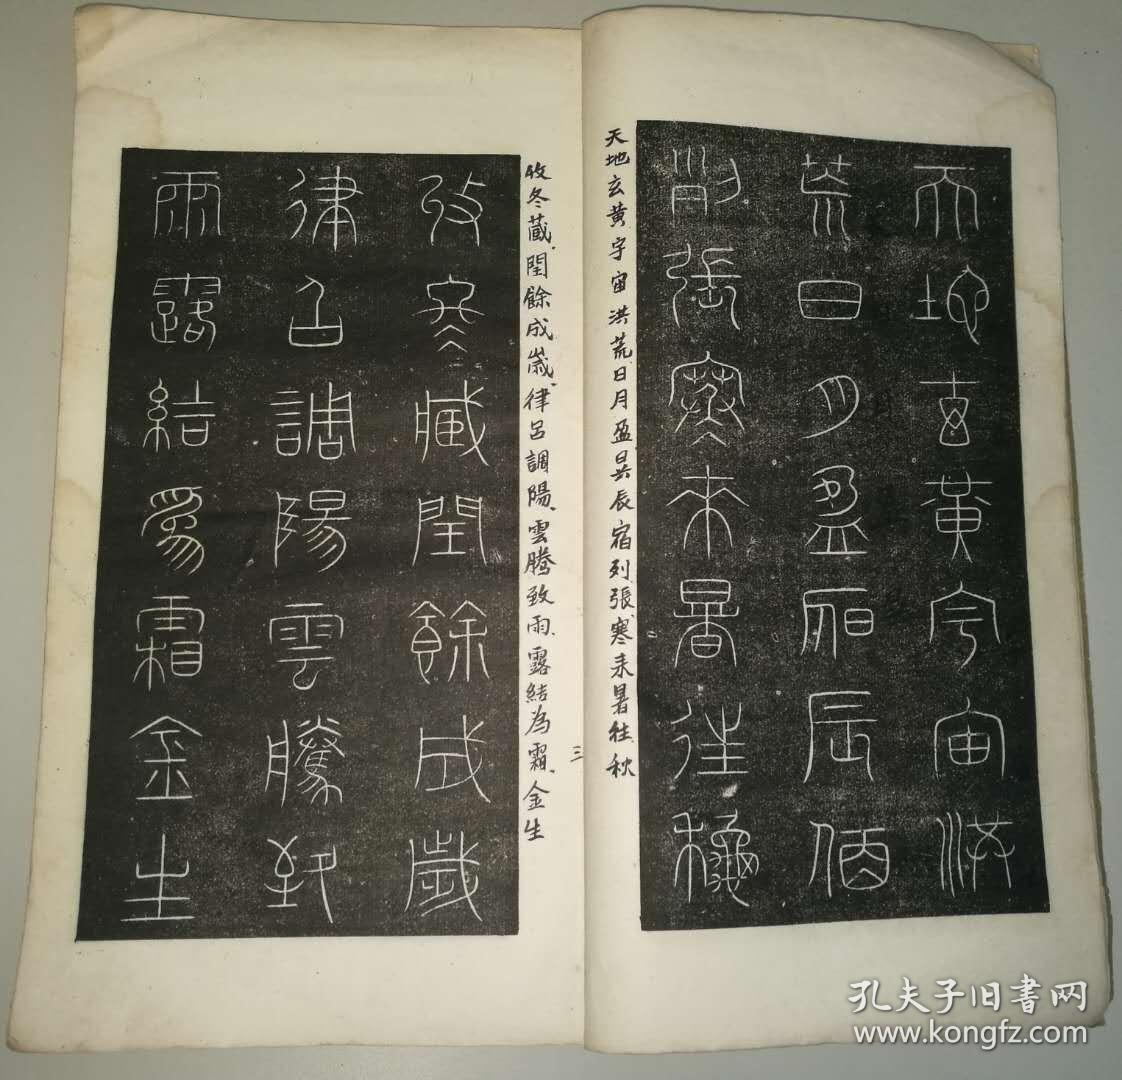 天地玄黃宇宙洪
荒日月盈昃辰宿
列張寒來暑往秋
天地玄黄宇宙洪荒、日月盈昃辰宿列張、寒来暑往、秋
三
收冬藏、閏餘成歲、律呂調陽、雲騰致雨、露結為霜、金生
收冬藏閏餘成歲
律呂調陽雲騰致
雨露結為霜金生
孔夫子旧書网
www.kongfz.com